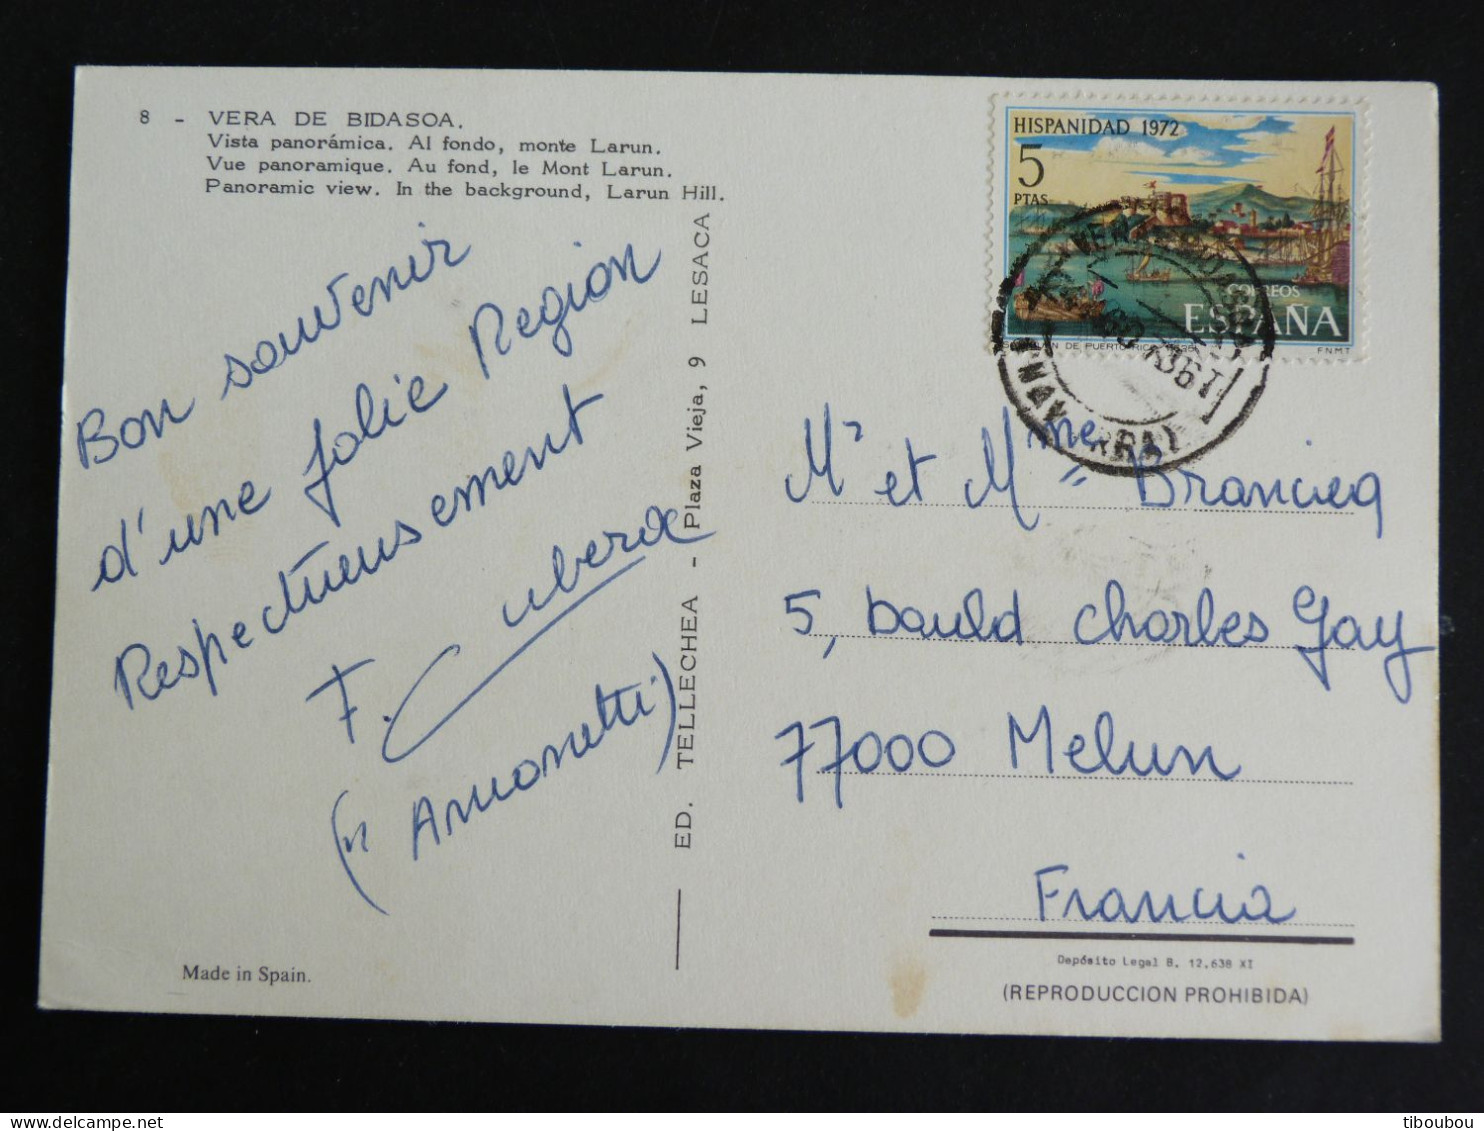 8 - VERA DE BIDASOA.
Vista panorámica. Al fondo, monte Larun.
Vue panoramique. Au fond, le Mont Larun.
Panoramic view. In the background, Larun Hill.
Bon souvenir
d'une jolie Region
Respectueusement
F.
Made in Spain.
ED. TELLECHEA - Plaza Vieja, 9 LESACA
HISPANIDAD 1972
5
PTAS
CORREOS
ESPAÑA
F.N.M.T.
(NAVARRA)
Mr et Mme
5, Bauld Charles Gay
77000 Melun
Francia
Depósito Legal B. 12.638 XI
(REPRODUCCION PROHIBIDA)
tiboubou